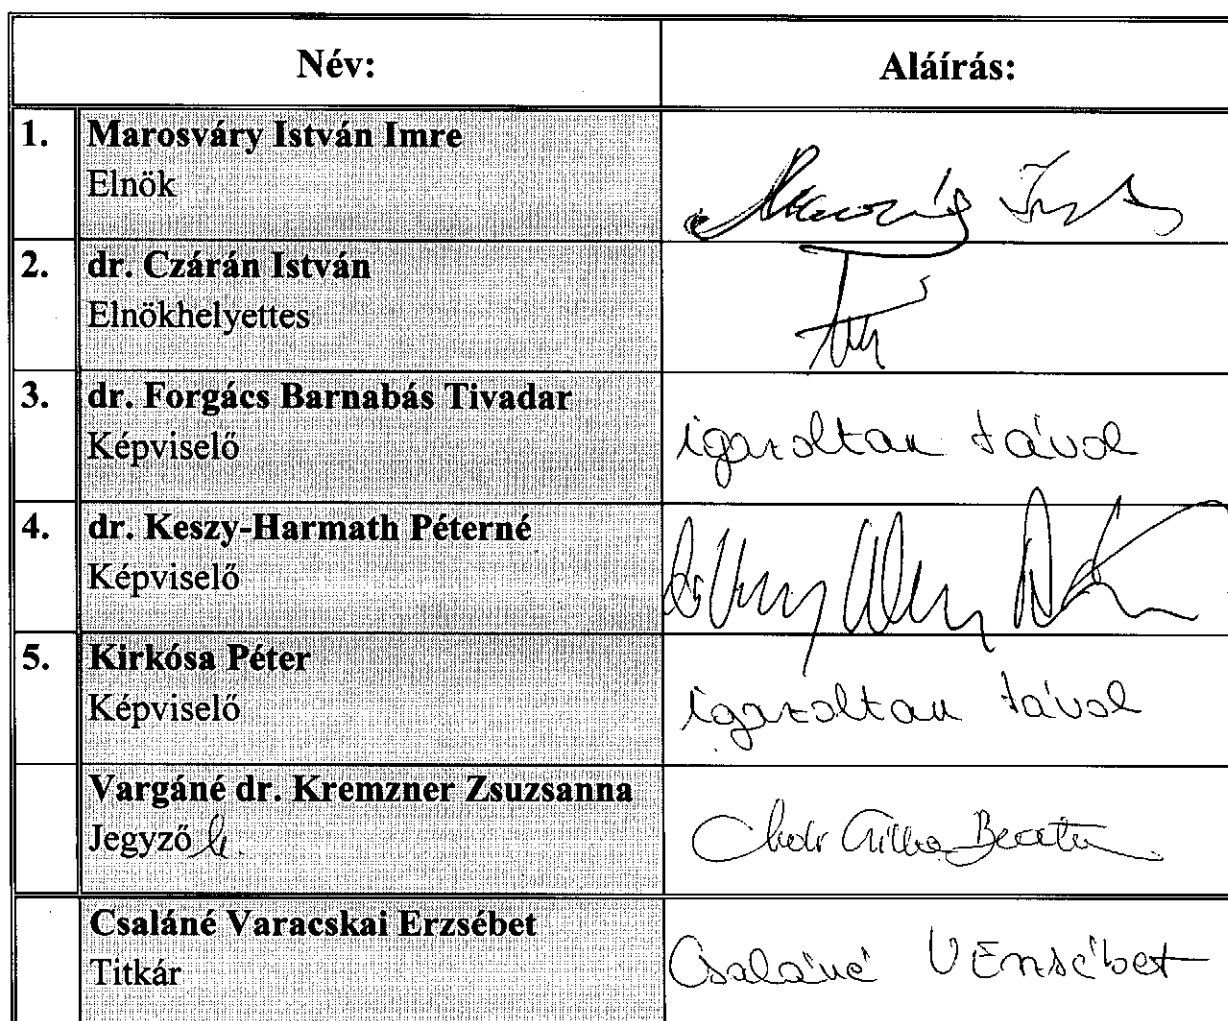 Név: Aláírás:
1. Marosváry István Imre
Elnök
2. dr. Czárán István
Elnökhelyettes
3. dr. Forgács Barnabás Tivadar
Képviselő
igazoltan távol
4. dr. Keszy-Harmath Péterné
Képviselő
5. Kirkósa Péter
Képviselő
igazoltan távol
Vargáné dr. Kremzner Zsuzsanna
Jegyző h.
Csaláné Varacskai Erzsébet
Titkár
Csaláné V Erzsébet